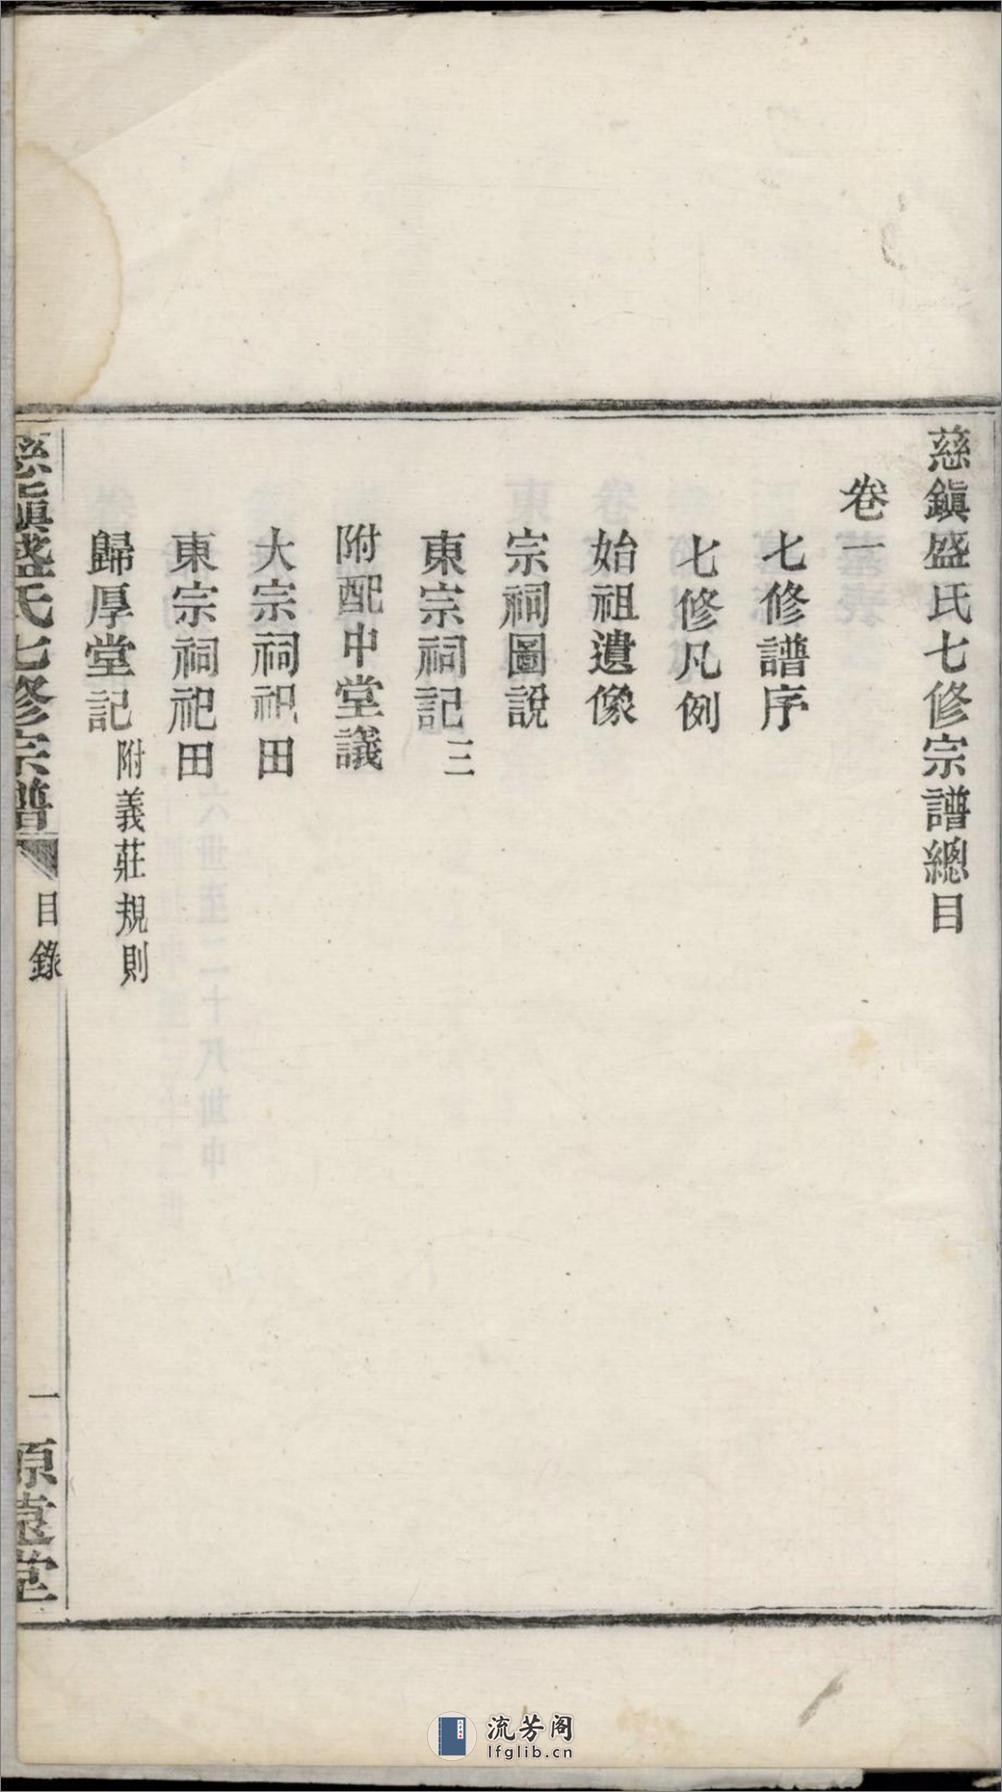 慈鎮盛氏七修宗譜總目
卷一
七修譜序
七修凡例
始祖遺像
宗祠圖說
東宗祠記三
附配中堂議
大宗祠祀田
東宗祠祀田
歸厚堂記附義莊規則
慈鎮盛氏七修宗譜 目錄 一 堂
流芳阁
lfglib.cn